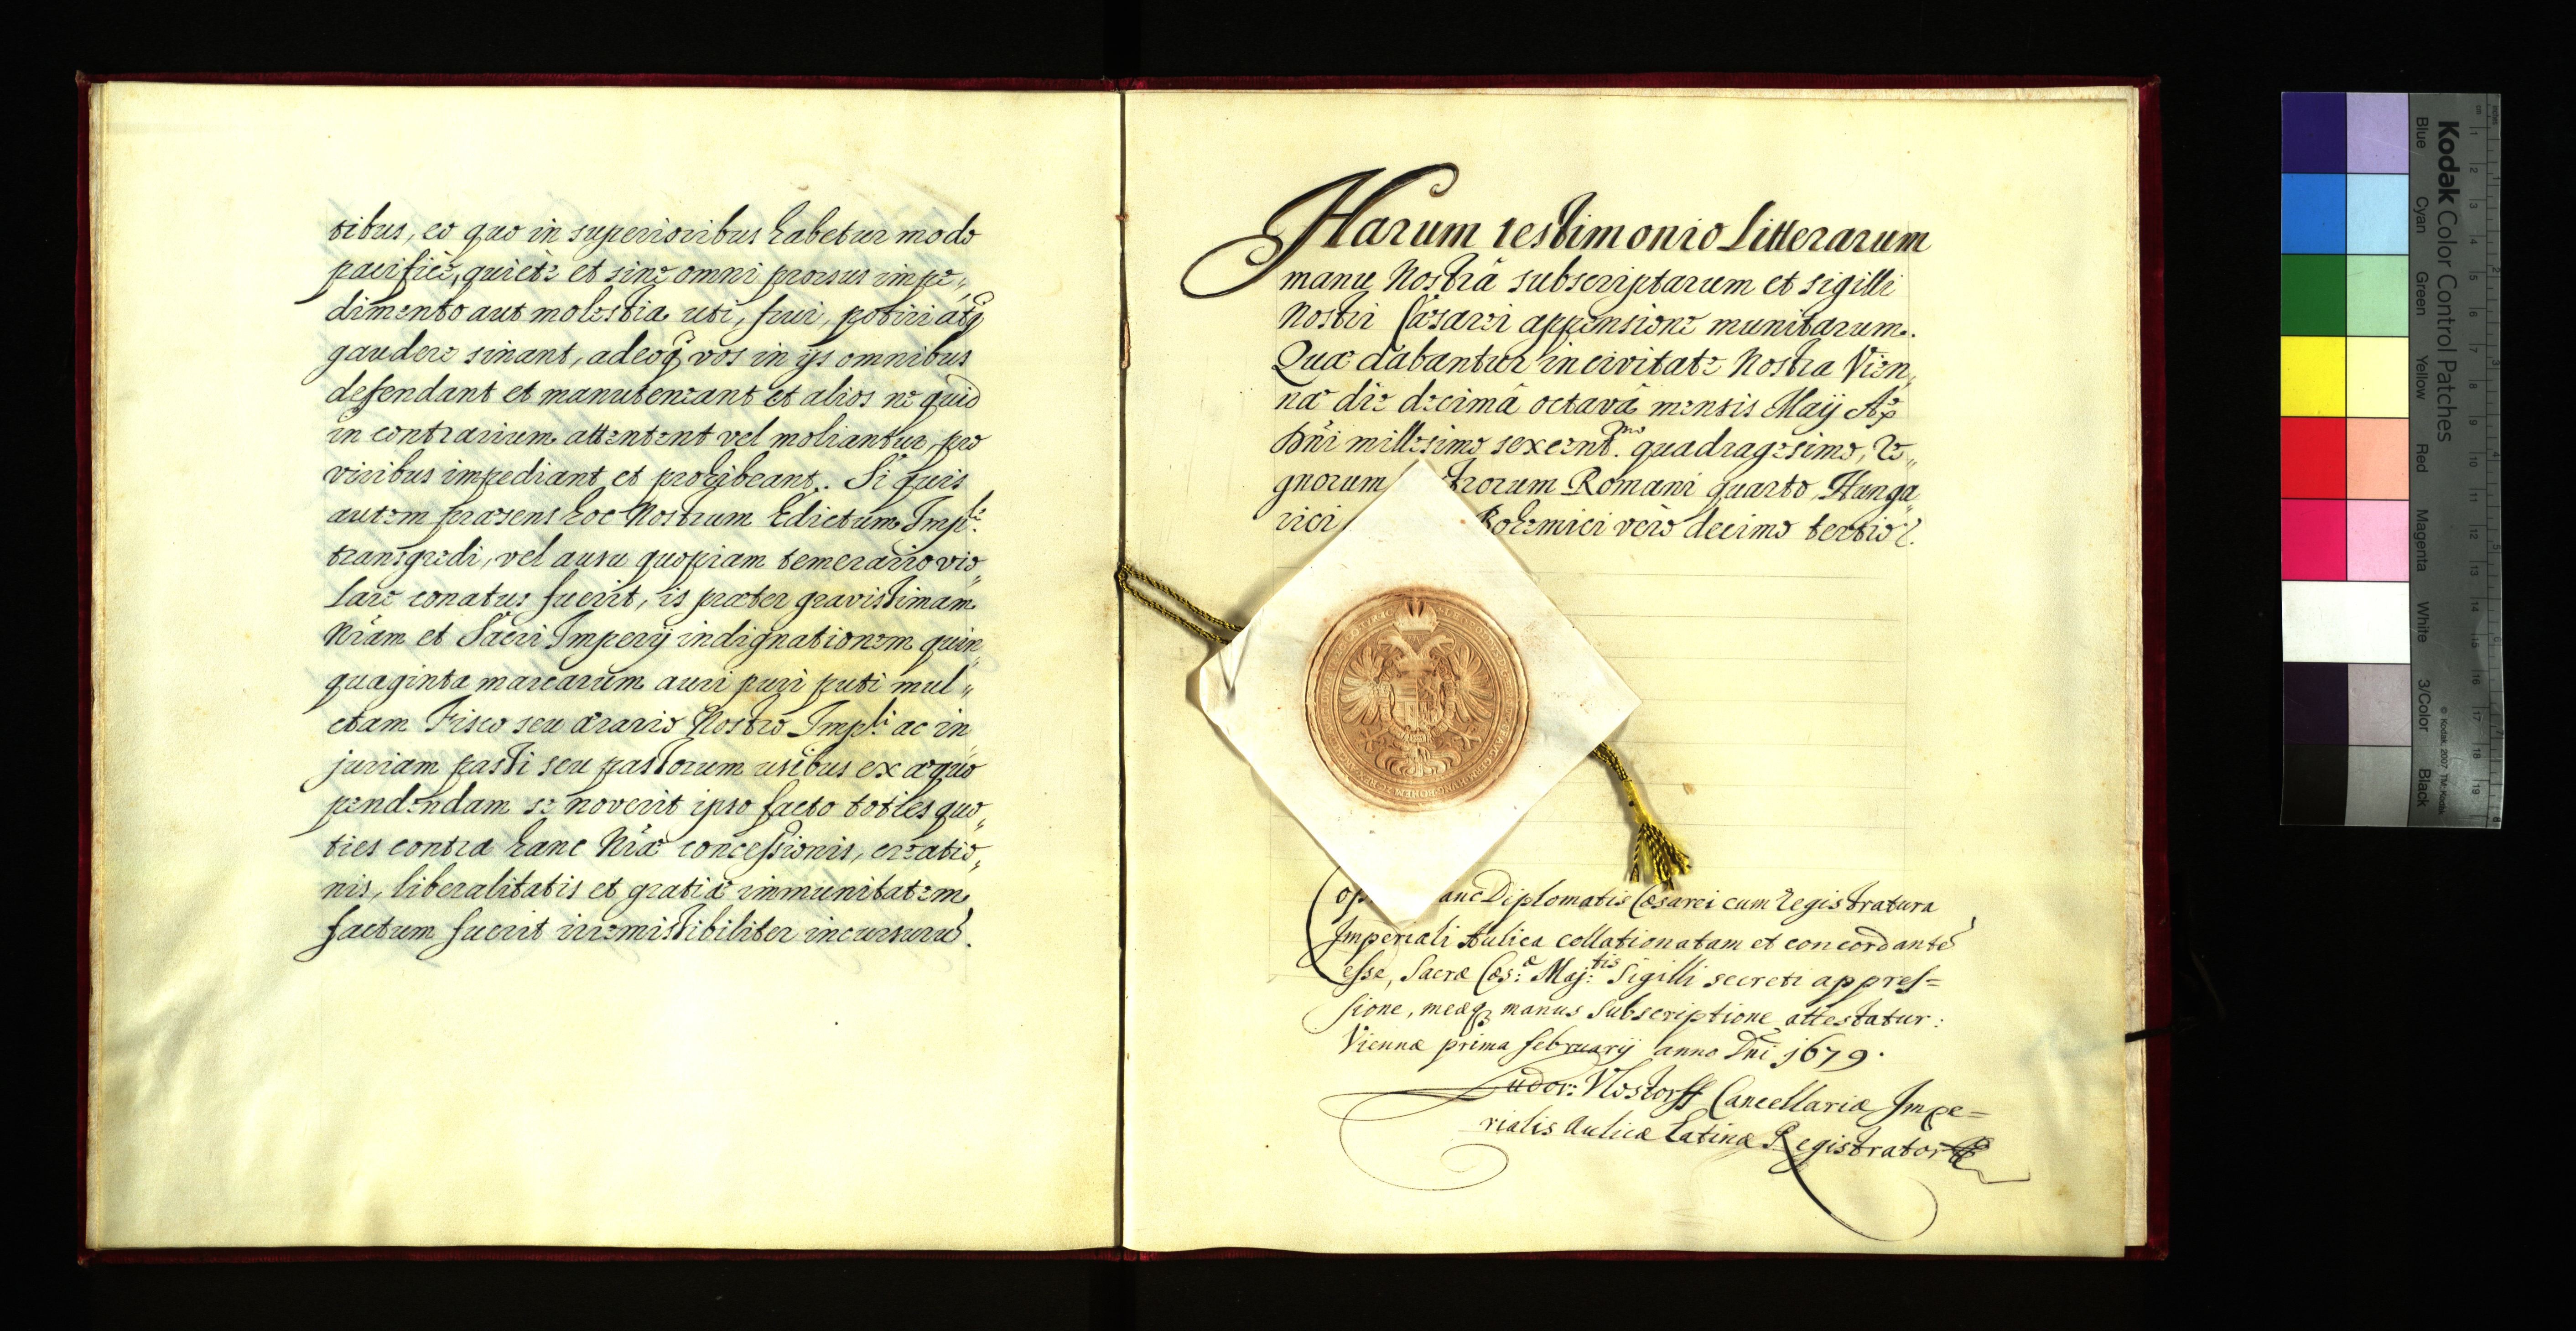 tibus, eo quo in superioribus habetur modo
pacificè, quietè et sine omni prorsus impe„
dimento aut molestia uti, frui, potiri atq̃
gaudere sinant, adeoq̃ vos in ijs omnibus
defendant et manuteneant et alios ne quid
in contrarium attentent vel moliantur, pro
viribus impediant et prohibeant. Si quis
autem præsens hoc Nostrum Edictum Imp.le
transgredi, vel ausu quopiam temerario vio„
lare conatus fuerit, is præter gravissimam
Nr̃am et Sacri Imperij indignationem quin„
quaginta marcarum auri puri puti mul„
ctam Fisco seu ærario Nostro Imp.li ac in„
juriam passi seu passorum usibus ex æquo
pendendam se noverit ipso facto toties quo„
ties contra hanc Nr̃æ concessionis, creatio„
nis, liberalitatis et gratiæ immunitatem
factum fuerit irremissibiliter incursurũ.
Harum testimonio Litterarum
manu Nostrâ subscriptarum et sigilli
Nostri Cæsarei appensione munitarum.
Quæ dabantur in civitate Nostra Vien„
nâ die decimâ octavâ mensis Maij Aõ
Dñi millesimo sexcent.mo quadragesimo, Re„
gnorum trorum Romani quarto, Hunga„
rici Bohemici verò decimo tertio
anc Diplomatis Cæsarei cum Registratura
Imperiali Aulica collationatam et concordantẽ
esse, Sacræ Cæs:æ Maj:tis Sigilli secreti appres=
sione, meæq₃ manus subscriptione attestatur:
Viennæ prima februarij anno Dñi 1679.
Cancellariæ Impe=
rialis Aulicæ Latinæ Registrator
Kodak Color Control Patches
Blue Cyan Green Yellow Red Magenta White 3/Color Black
© Kodak, 2007 TM: Kodak
1 2 3 4 5 6 7 8 9 10 11 12 13 14 15 16 17 18 19